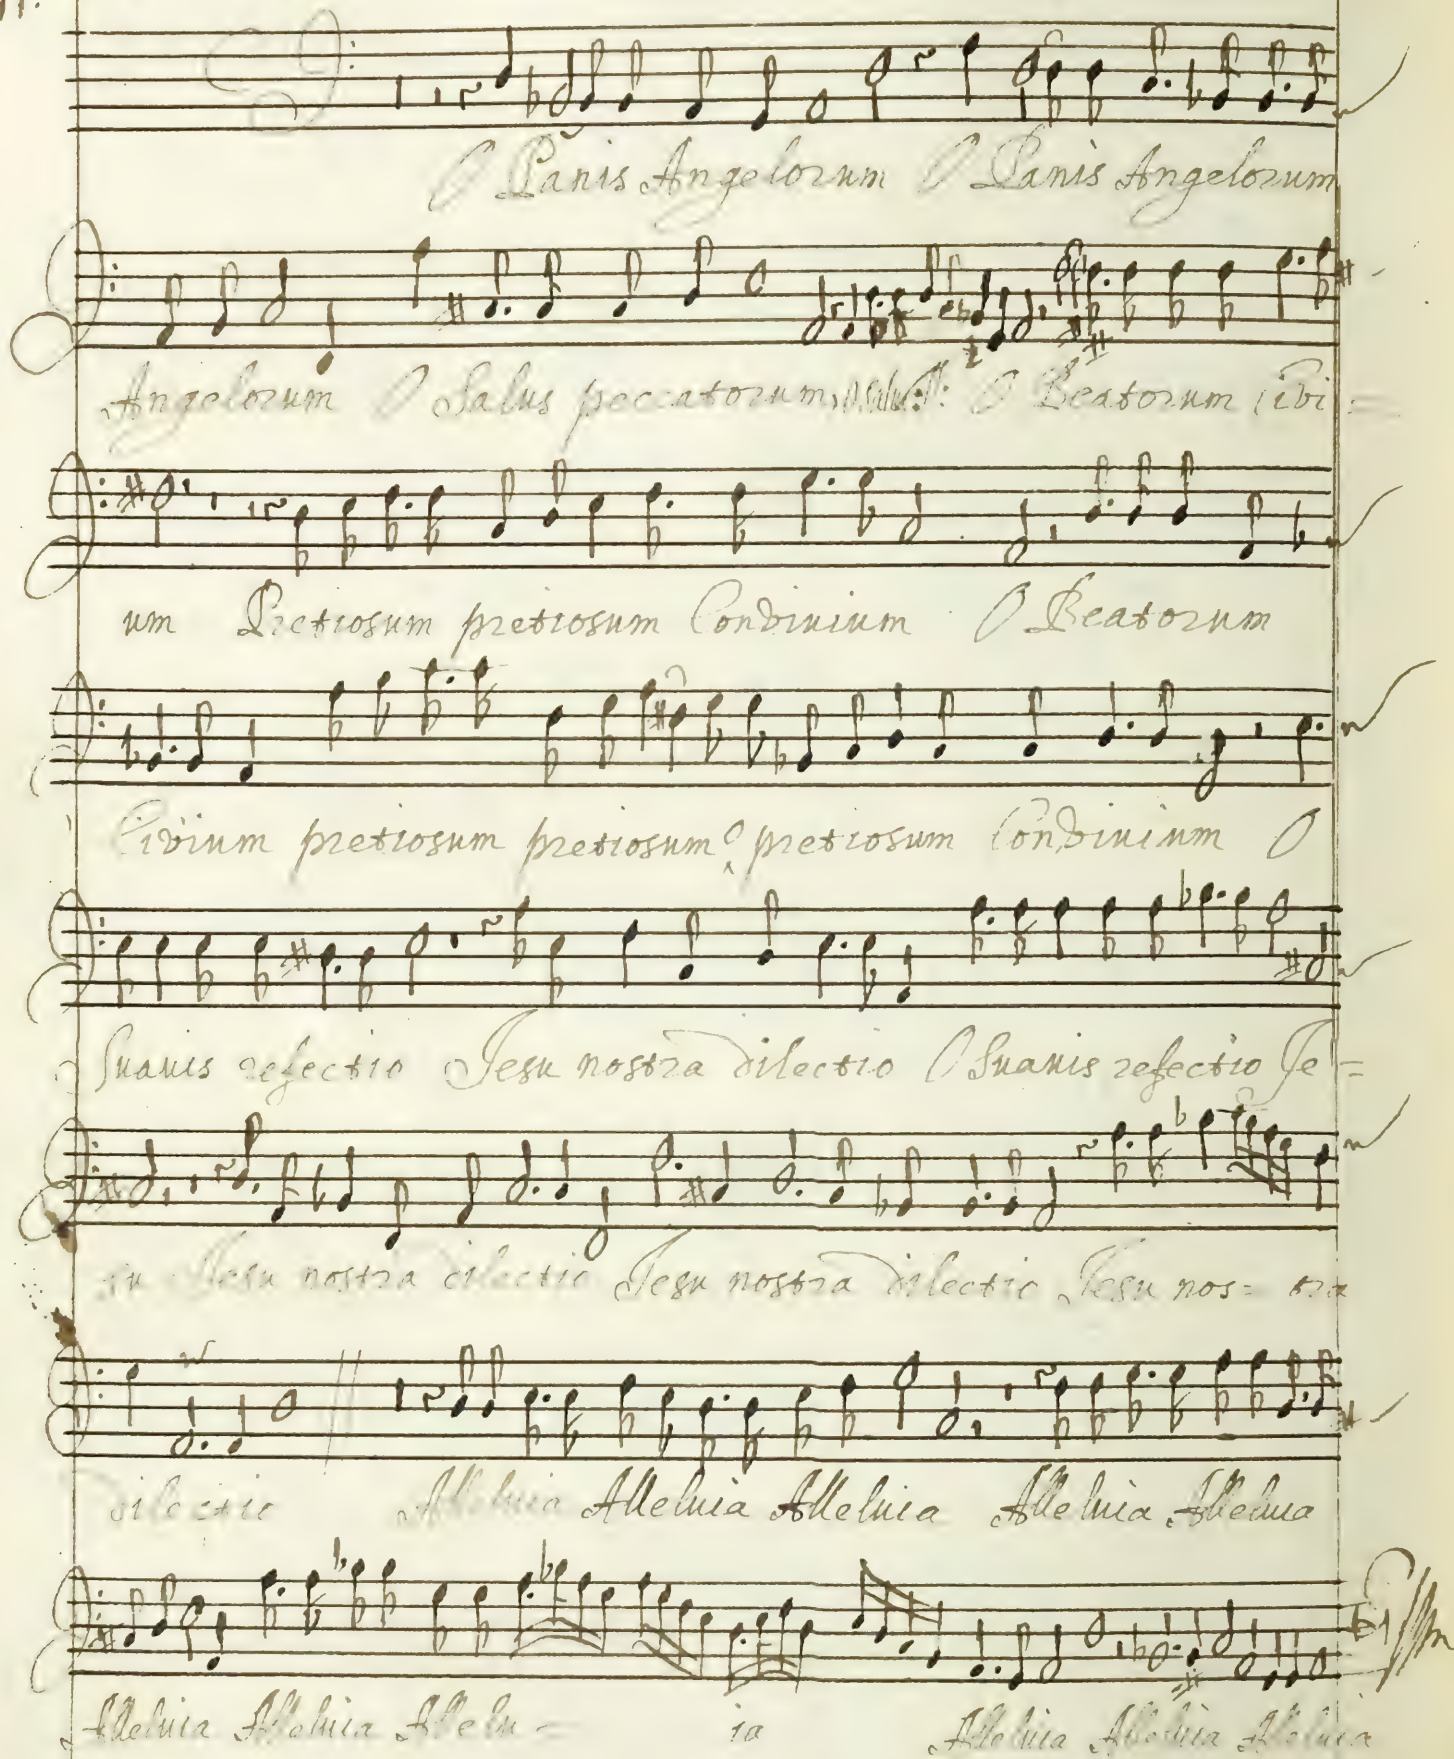 O Panis Angelorum O Panis Angelorum
Angelorum O Salus peccatorum, O Beatorum Cibi =
um Pretiosum pretiosum Convivium O Beatorum
Civium pretiosum pretiosum pretiosum Convivium O
Suavis refectio Jesu nostra dilectio O Suavis refectio Je =
su Jesu nostra dilectio Jesu nostra dilectio Jesu nos = tra
dilectio Alleluia Alleluia Alleluia Alleluia Alleluia
Alleluia Alleluia Allelu = ia Alleluia Alleluia Alleluia